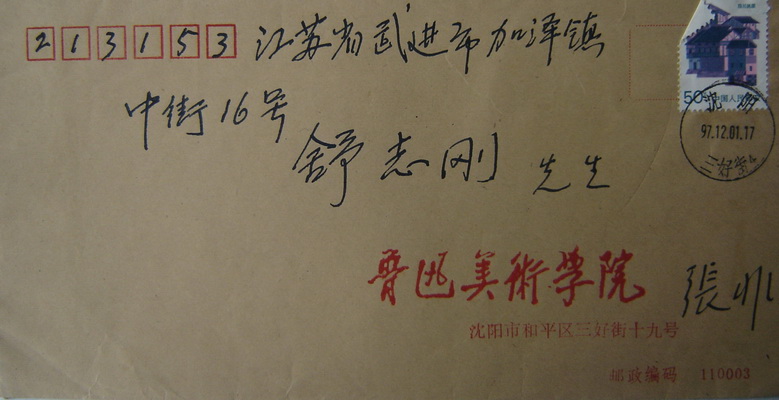 213153 江苏省武进市加泽镇
中街16号
舒志刚 先生
50分 中国人民
沈阳
97.12.01.17
三好街
鲁迅美術学院 張
沈阳市和平区三好街十九号
邮政编码 110003